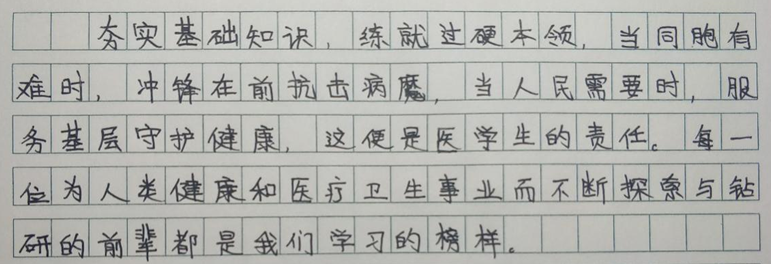 夯实基础知识，练就过硬本领，当同胞有
难时，冲锋在前抗击病魔，当人民需要时，服
务基层守护健康，这便是医学生的责任。每一
位为人类健康和医疗卫生事业而不断探索与钻
研的前辈都是我们学习的榜样。